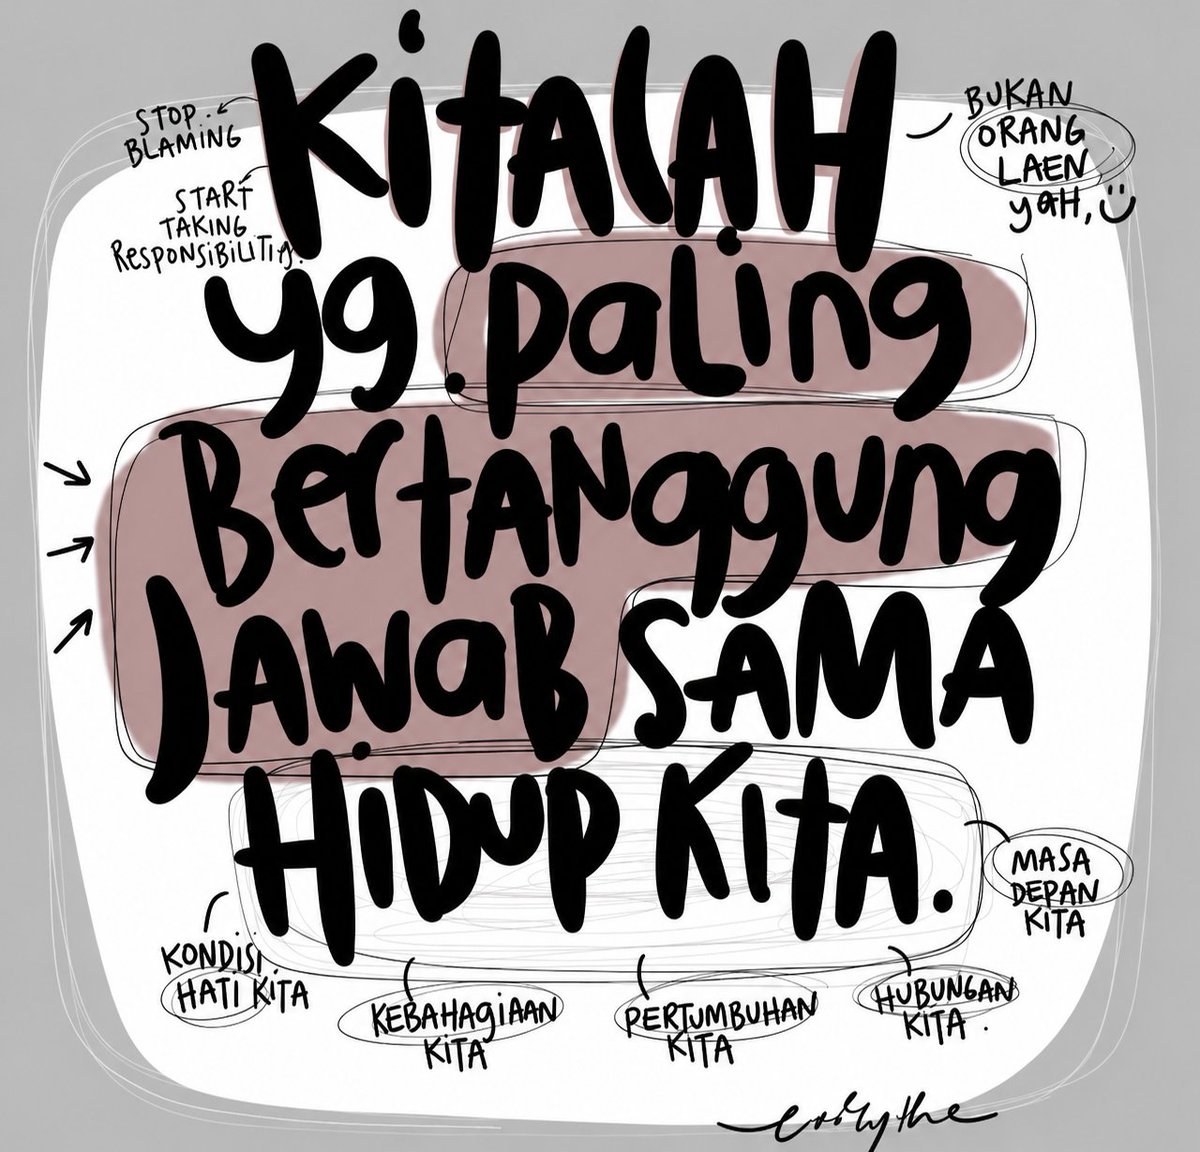 KiTALAH
yg paLing
BerTANggung
JAWaB SAMA
HiDup KiTA.
STOP
BLAMiNG
START
TAKING
RESPONSiBiLITIY.
BUKAN
ORANG
LAEN
yaH, :)
MASA
DEPAN
KITA
KONDiSi
HATI KITA
KEBAHAgiAAN
KiTA
PERTUMBUHAN
KITA
HUBUNGAN
KITA.